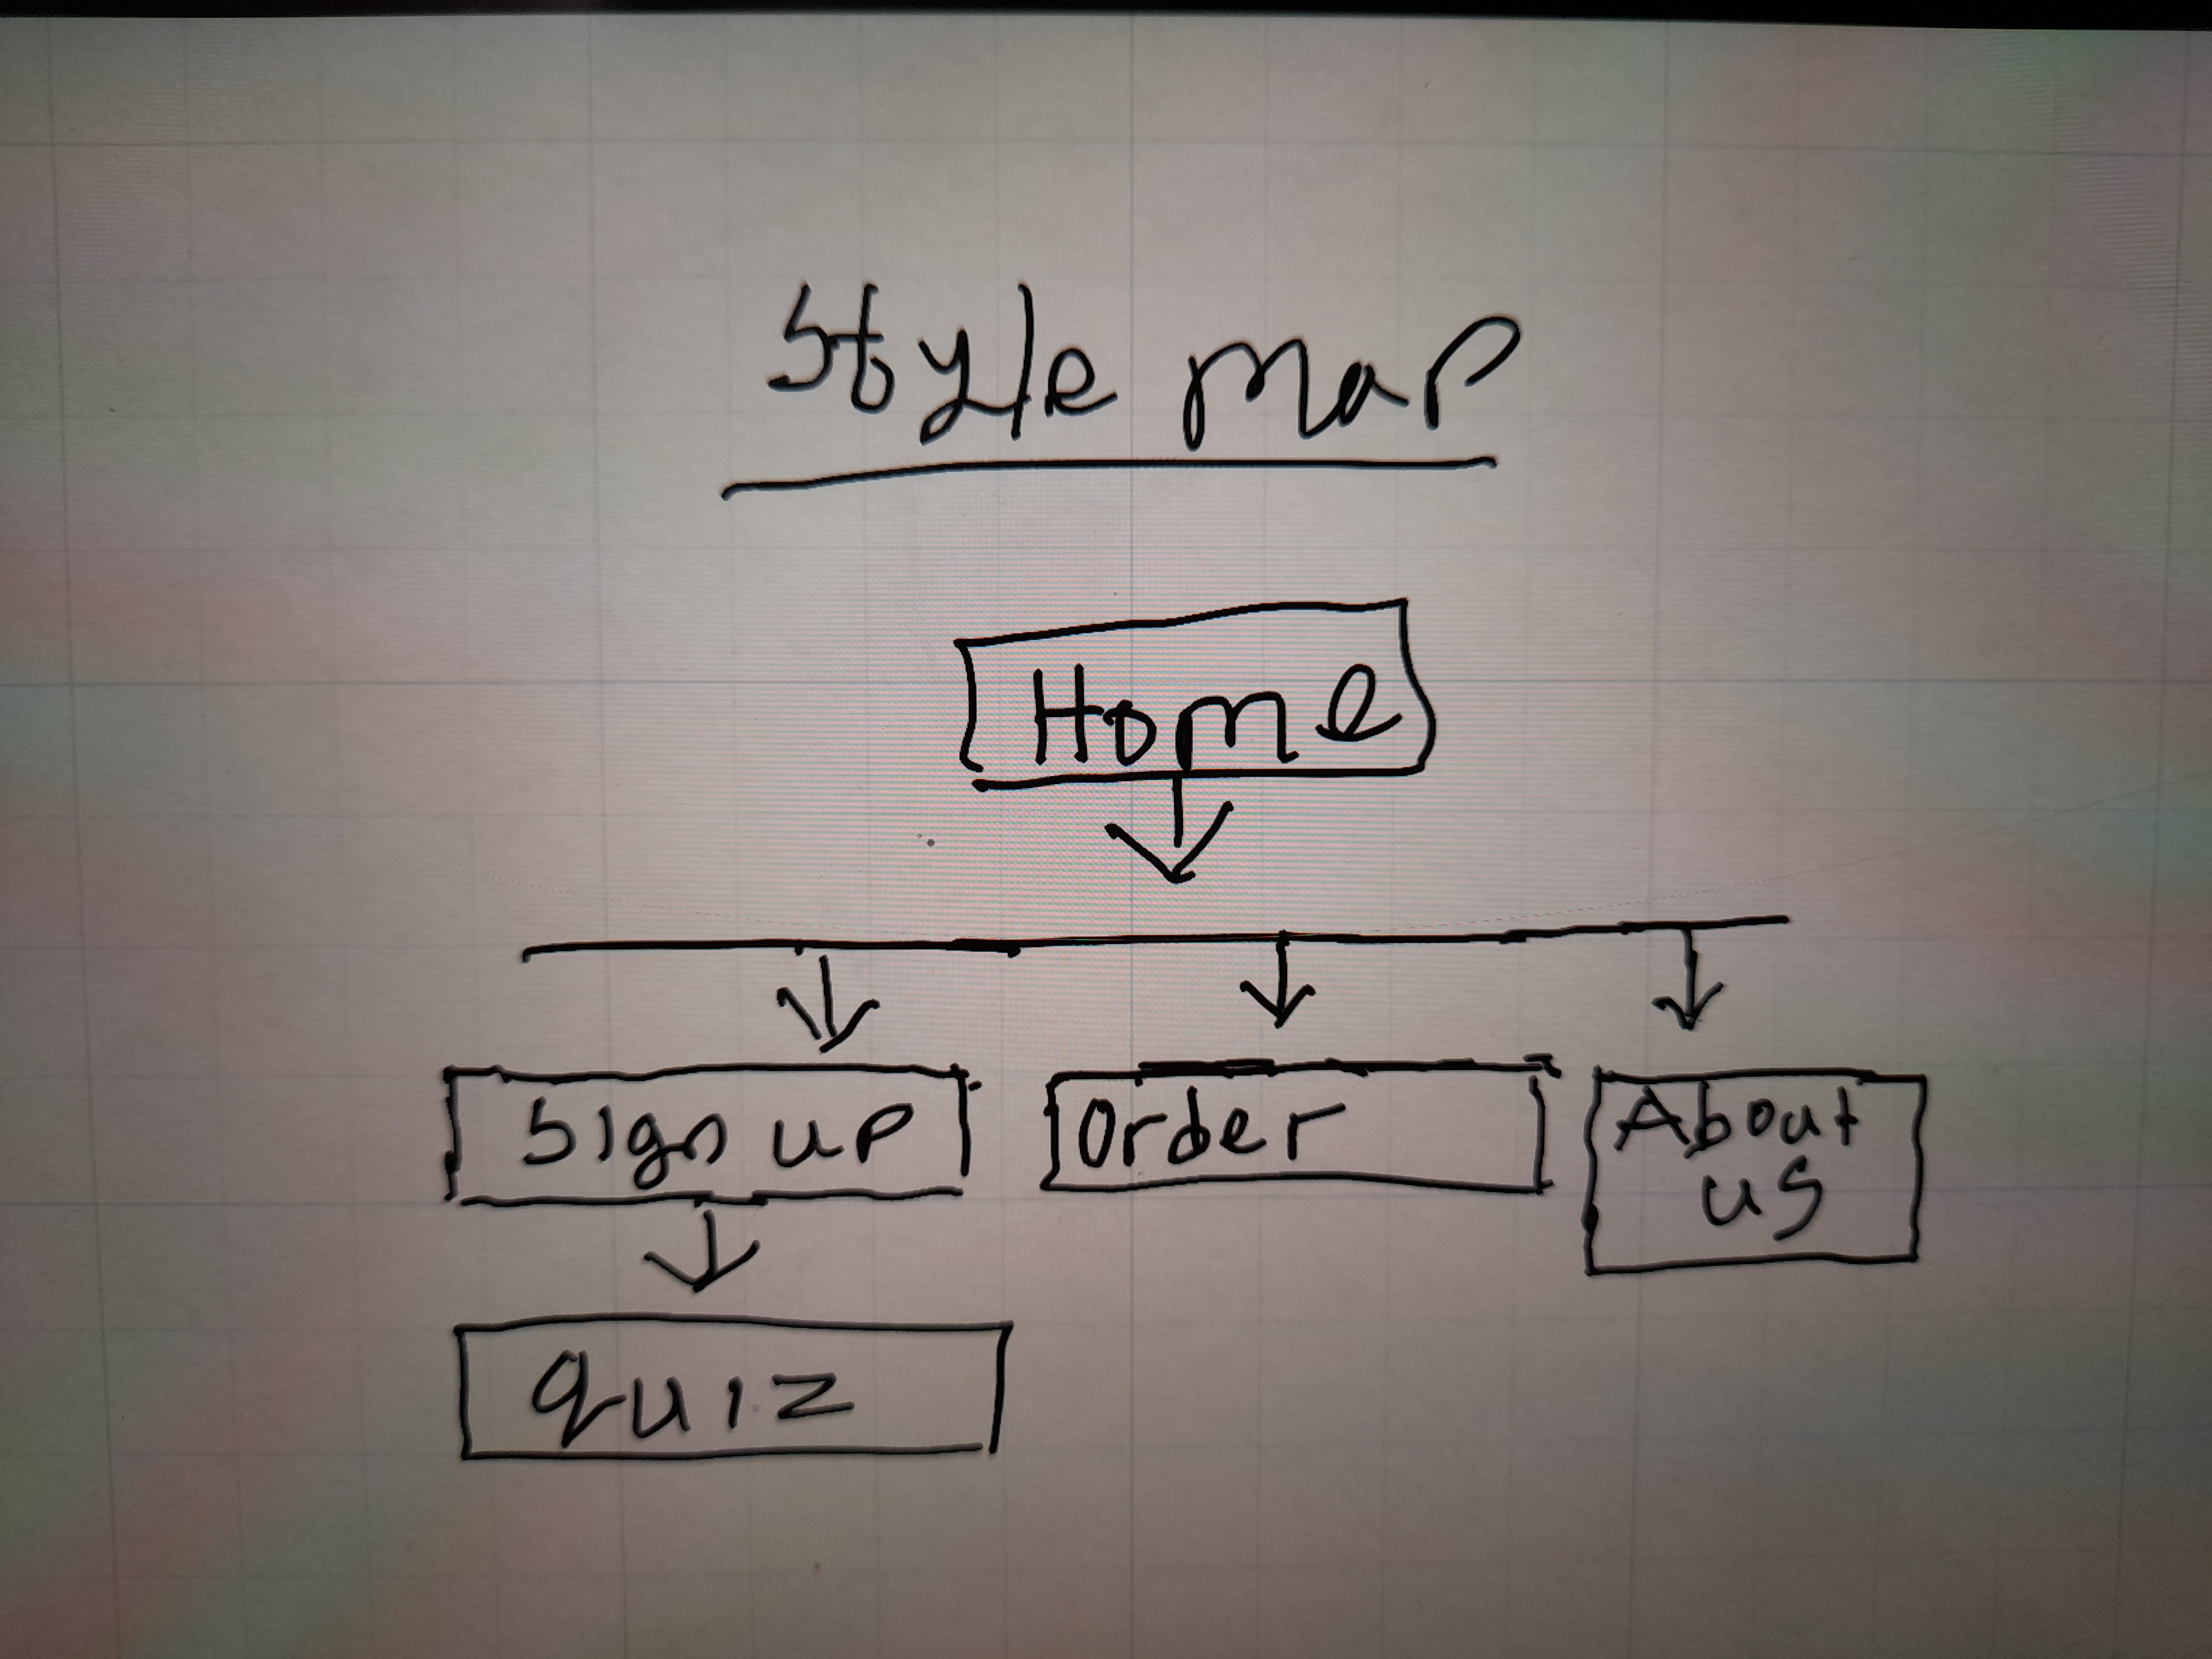 Style map
Home
Sign up
Order
About
us
quiz